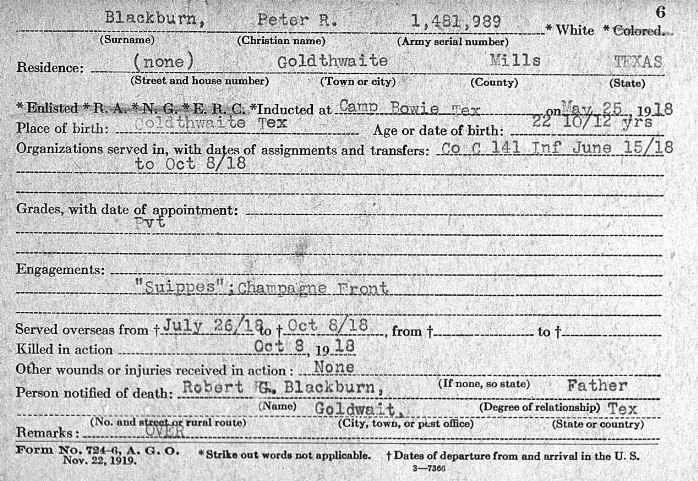 6
Blackburn, Peter R. 1,481,989 * White * Colored.
(Surname) (Christian name) (Army serial number)
Residence: (none) Goldthwaite Mills TEXAS
(Street and house number) (Town or city) (County) (State)
* Enlisted * R. A. * N. G. * E. R. C. * Inducted at Camp Bowie Tex on May 25, 1918
Place of birth: Goldthwaite Tex Age or date of birth: 22 10/12 yrs
Organizations served in, with dates of assignments and transfers: Co C 141 Inf June 15/18
to Oct 8/18
Grades, with date of appointment:
Pvt
Engagements:
"Suippes"; Champagne Front
Served overseas from † July 26/18 to † Oct 8/18, from † to †
Killed in action Oct 8, 1918
Other wounds or injuries received in action: None
Person notified of death: Robert G. Blackburn, (If none, so state) Father
(Name) Goldwait, (Degree of relationship) Tex
(No. and street or rural route) (City, town, or post office) (State or country)
Remarks: OVER
Form No. 724-6, A. G. O. * Strike out words not applicable. † Dates of departure from and arrival in the U. S.
Nov. 22, 1919. 3—7366